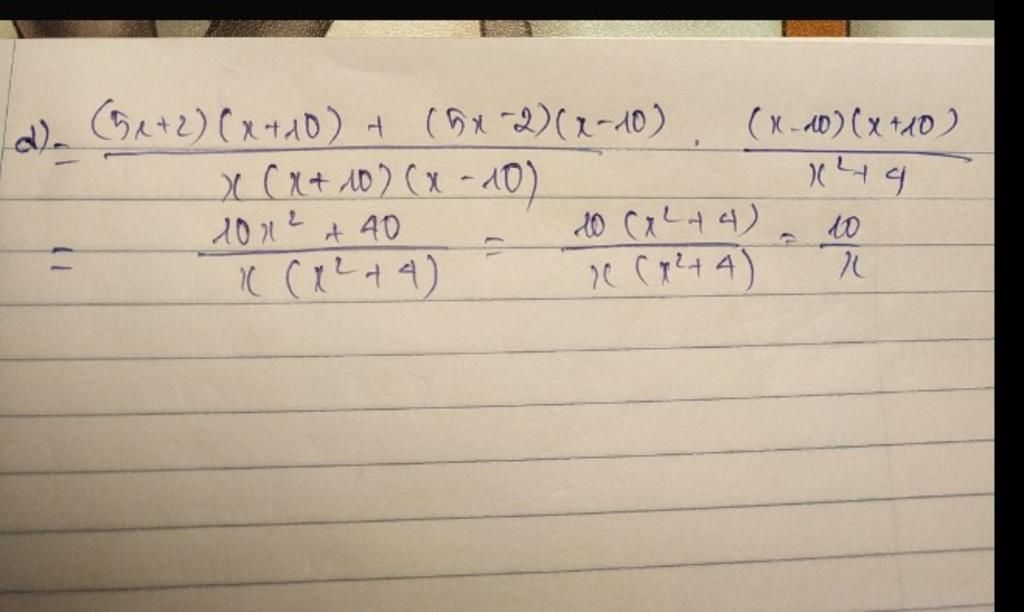 d) = \frac{(5x+2)(x+10) + (5x-2)(x-10)}{x(x+10)(x-10)} . \frac{(x-10)(x+10)}{x^2+4}
= \frac{10x^2+40}{x(x^2+4)} = \frac{10(x^2+4)}{x(x^2+4)} = \frac{10}{x}